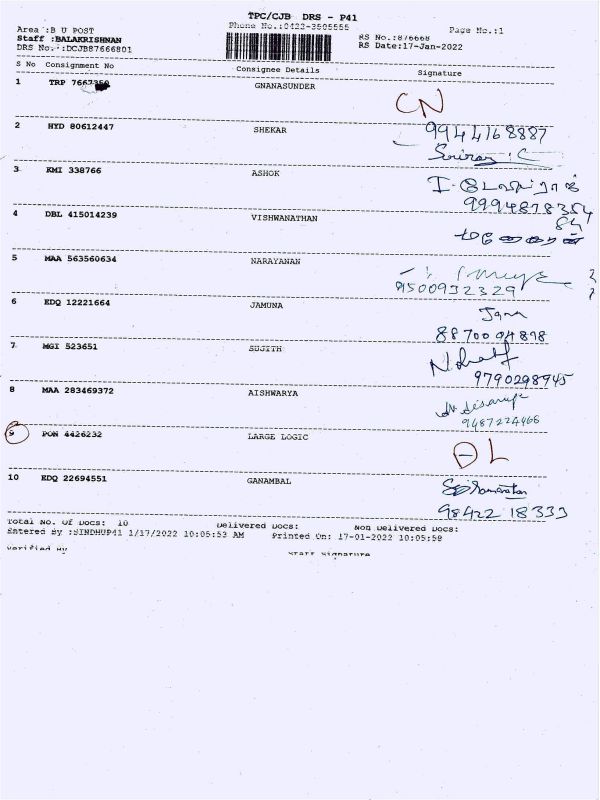 TPC/CJB DRS - P41
Area :B U POST Phone No.:0423-3505555 Page No.:1
Staff :BALAKRISHNAN RS No.:876668
DRS No.:DCJB87666801 RS Date:17-Jan-2022
S No Consignment No Consignee Details Signature
1 TRP GNANASUNDER CN
2 HYD 80612447 SHEKAR 9944168887
3 KMI 338766 ASHOK
9994878354
84
4 DBL 415014239 VISHWANATHAN
5 MAA 563560634 NARAYANAN
9500932329
6 EDQ 12221664 JAMUNA Jana
88700 04898
7 MGI 523651 SUJITH
9790298945
8 MAA 283469372 AISHWARYA
9487224466
9 PON 4426232 LARGE LOGIC L
10 EDQ 22694551 GANAMBAL
98422 18333
Total No. Of Docs: 10 Delivered Docs: Non Delivered Docs:
Entered By :SINDHUP41 1/17/2022 10:05:53 AM Printed On: 17-01-2022 10:05:58
Verified By Staff Signature